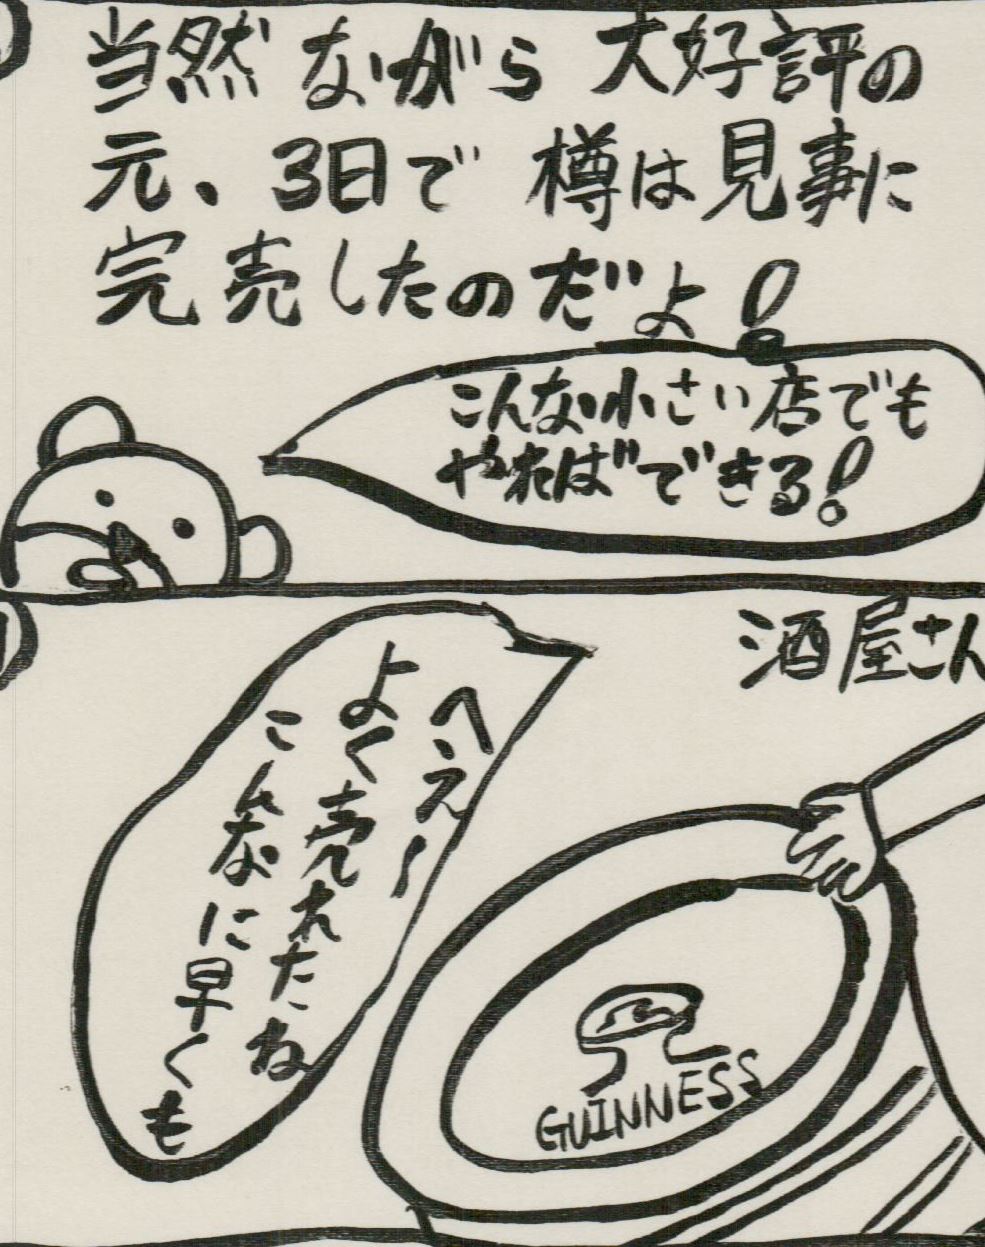 当然ながら大好評の
元、3日で樽は見事に
完売したのだよ!
こんな小さい店でも
やればできる!
酒屋さん
へえ〜
よく売れたね
こんなに早くも
GUINNESS